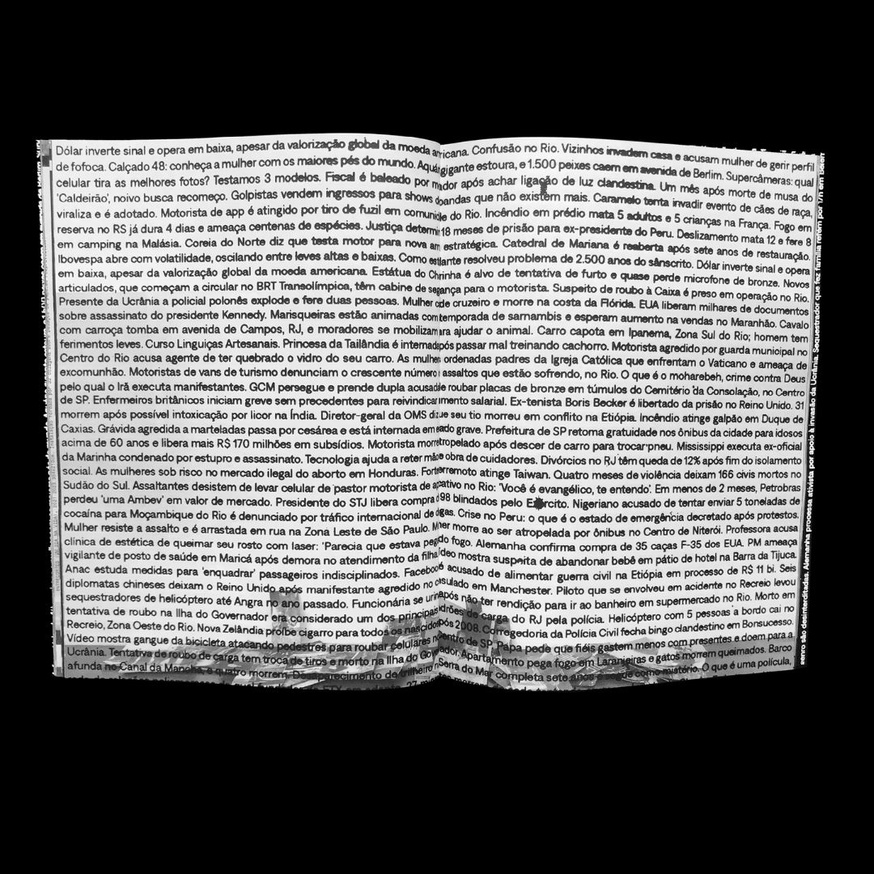 Dólar inverte sinal e opera em baixa, apesar da valorização global da moeda americana. Confusão no Rio. Vizinhos invadem casa e acusam mulher de gerir perfil
de fofoca. Calçado 48: conheça a mulher com os maiores pés do mundo. gigante estoura, e 1.500 peixes caem em avenida de Berlim. Supercâmeras: qual
celular tira as melhores fotos? Testamos 3 modelos. Fiscal é baleado por após achar ligação de luz clandestina. Um mês após morte de musa do
'Caldeirão', noivo busca recomeço. Golpistas vendem ingressos para shows bandas que não existem mais. Caramelo tenta invadir evento de cães de raça,
viraliza e é adotado. Motorista de app é atingido por tiro de fuzil em do Rio. Incêndio em prédio mata 5 adultos e 5 crianças na França. Fogo em
reserva no RS já dura 4 dias e ameaça centenas de espécies. Justiça 18 meses de prisão para ex-presidente do Peru. Deslizamento mata 12 e fere 8
em camping na Malásia. Coreia do Norte diz que testa motor para nova estratégica. Catedral de Mariana é reaberta após sete anos de restauração.
Ibovespa abre com volatilidade, oscilando entre leves altas e baixas. Como resolveu problema de 2.500 anos do sânscrito. Dólar inverte sinal e opera
em baixa, apesar da valorização global da moeda americana. Estátua do é alvo de tentativa de furto e quase perde microfone de bronze. Novos
articulados, que começam a circular no BRT Transolímpica, têm cabine de para o motorista. Suspeito de roubo à Caixa é preso em operação no Rio.
Presente da Ucrânia a policial polonês explode e fere duas pessoas. Mulher de cruzeiro e morre na costa da Flórida. EUA liberam milhares de documentos
sobre assassinato do presidente Kennedy. Marisqueiras estão animadas com temporada de sarnambis e esperam aumento na vendas no Maranhão. Cavalo
com carroça tomba em avenida de Campos, RJ, e moradores se mobilizam para ajudar o animal. Carro capota em Ipanema, Zona Sul do Rio; homem tem
ferimentos leves. Curso Linguiças Artesanais. Princesa da Tailândia é internada após passar mal treinando cachorro. Motorista agredido por guarda municipal no
Centro do Rio acusa agente de ter quebrado o vidro do seu carro. As mulheres ordenadas padres da Igreja Católica que enfrentam o Vaticano e ameaça de
excomunhão. Motoristas de vans de turismo denunciam o crescente número assaltos que estão sofrendo, no Rio. O que é o moharebeh, crime contra Deus
pelo qual o Irã executa manifestantes. GCM persegue e prende dupla de roubar placas de bronze em túmulos do Cemitério da Consolação, no Centro
de SP. Enfermeiros britânicos iniciam greve sem precedentes para reivindicar aumento salarial. Ex-tenista Boris Becker é libertado da prisão no Reino Unido. 31
morrem após possível intoxicação por licor na Índia. Diretor-geral da OMS diz que seu tio morreu em conflito na Etiópia. Incêndio atinge galpão em Duque de
Caxias. Grávida agredida a marteladas passa por cesárea e está internada em estado grave. Prefeitura de SP retoma gratuidade nos ônibus da cidade para idosos
acima de 60 anos e libera mais R$ 170 milhões em subsídios. Motorista atropelado após descer de carro para trocar pneu. Mississippi executa ex-oficial
da Marinha condenado por estupro e assassinato. Tecnologia ajuda a reter obra de cuidadores. Divórcios no RJ têm queda de 12% após fim do isolamento
social. As mulheres sob risco no mercado ilegal do aborto em Honduras. Forte terremoto atinge Taiwan. Quatro meses de violência deixam 166 civis mortos no
Sudão do Sul. Assaltantes desistem de levar celular de pastor motorista de no Rio: 'Você é evangélico, te entendo'. Em menos de 2 meses, Petrobras
perdeu 'uma Ambev' em valor de mercado. Presidente do STJ libera compra 98 blindados pelo Exército. Nigeriano acusado de tentar enviar 5 toneladas de
cocaína para Moçambique do Rio é denunciado por tráfico internacional de drogas. Crise no Peru: o que é o estado de emergência decretado após protestos.
Mulher resiste a assalto e é arrastada em rua na Zona Leste de São Paulo. Mulher morre ao ser atropelada por ônibus no Centro de Niterói. Professora acusa
clínica de estética de queimar seu rosto com laser: 'Parecia que estava pegando fogo. Alemanha confirma compra de 35 caças F-35 dos EUA. PM ameaça
vigilante de posto de saúde em Maricá após demora no atendimento da filha. Vídeo mostra suspeita de abandonar bebê em pátio de hotel na Barra da Tijuca.
Anac estuda medidas para 'enquadrar' passageiros indisciplinados. Facebook é acusado de alimentar guerra civil na Etiópia em processo de R$ 11 bi. Seis
diplomatas chineses deixam o Reino Unido após manifestante agredido no consulado em Manchester. Piloto que se envolveu em acidente no Recreio levou
sequestradores de helicóptero até Angra no ano passado. Funcionária se após não ter rendição para ir ao banheiro em supermercado no Rio. Morto em
tentativa de roubo na Ilha do Governador era considerado um dos principais de carga do RJ pela polícia. Helicóptero com 5 pessoas a bordo cai no
Recreio, Zona Oeste do Rio. Nova Zelândia proíbe cigarro para todos os nascidos após 2008. Corregedoria da Polícia Civil fecha bingo clandestino em Bonsucesso.
Vídeo mostra gangue da bicicleta atacando pedestres para roubar celulares no Centro de SP. Papa pede que fiéis gastem menos com presentes e doem para a
Ucrânia. Tentativa de roubo de carga tem troca de tiros e morto na Ilha do Governador. Apartamento pega fogo em Laranjeiras e gatos morrem queimados. Barco
afunda no Canal da Mancha e quatro morrem. Desaparecimento de Serra do Mar completa sete anos e segue como mistério. O que é uma polícula,